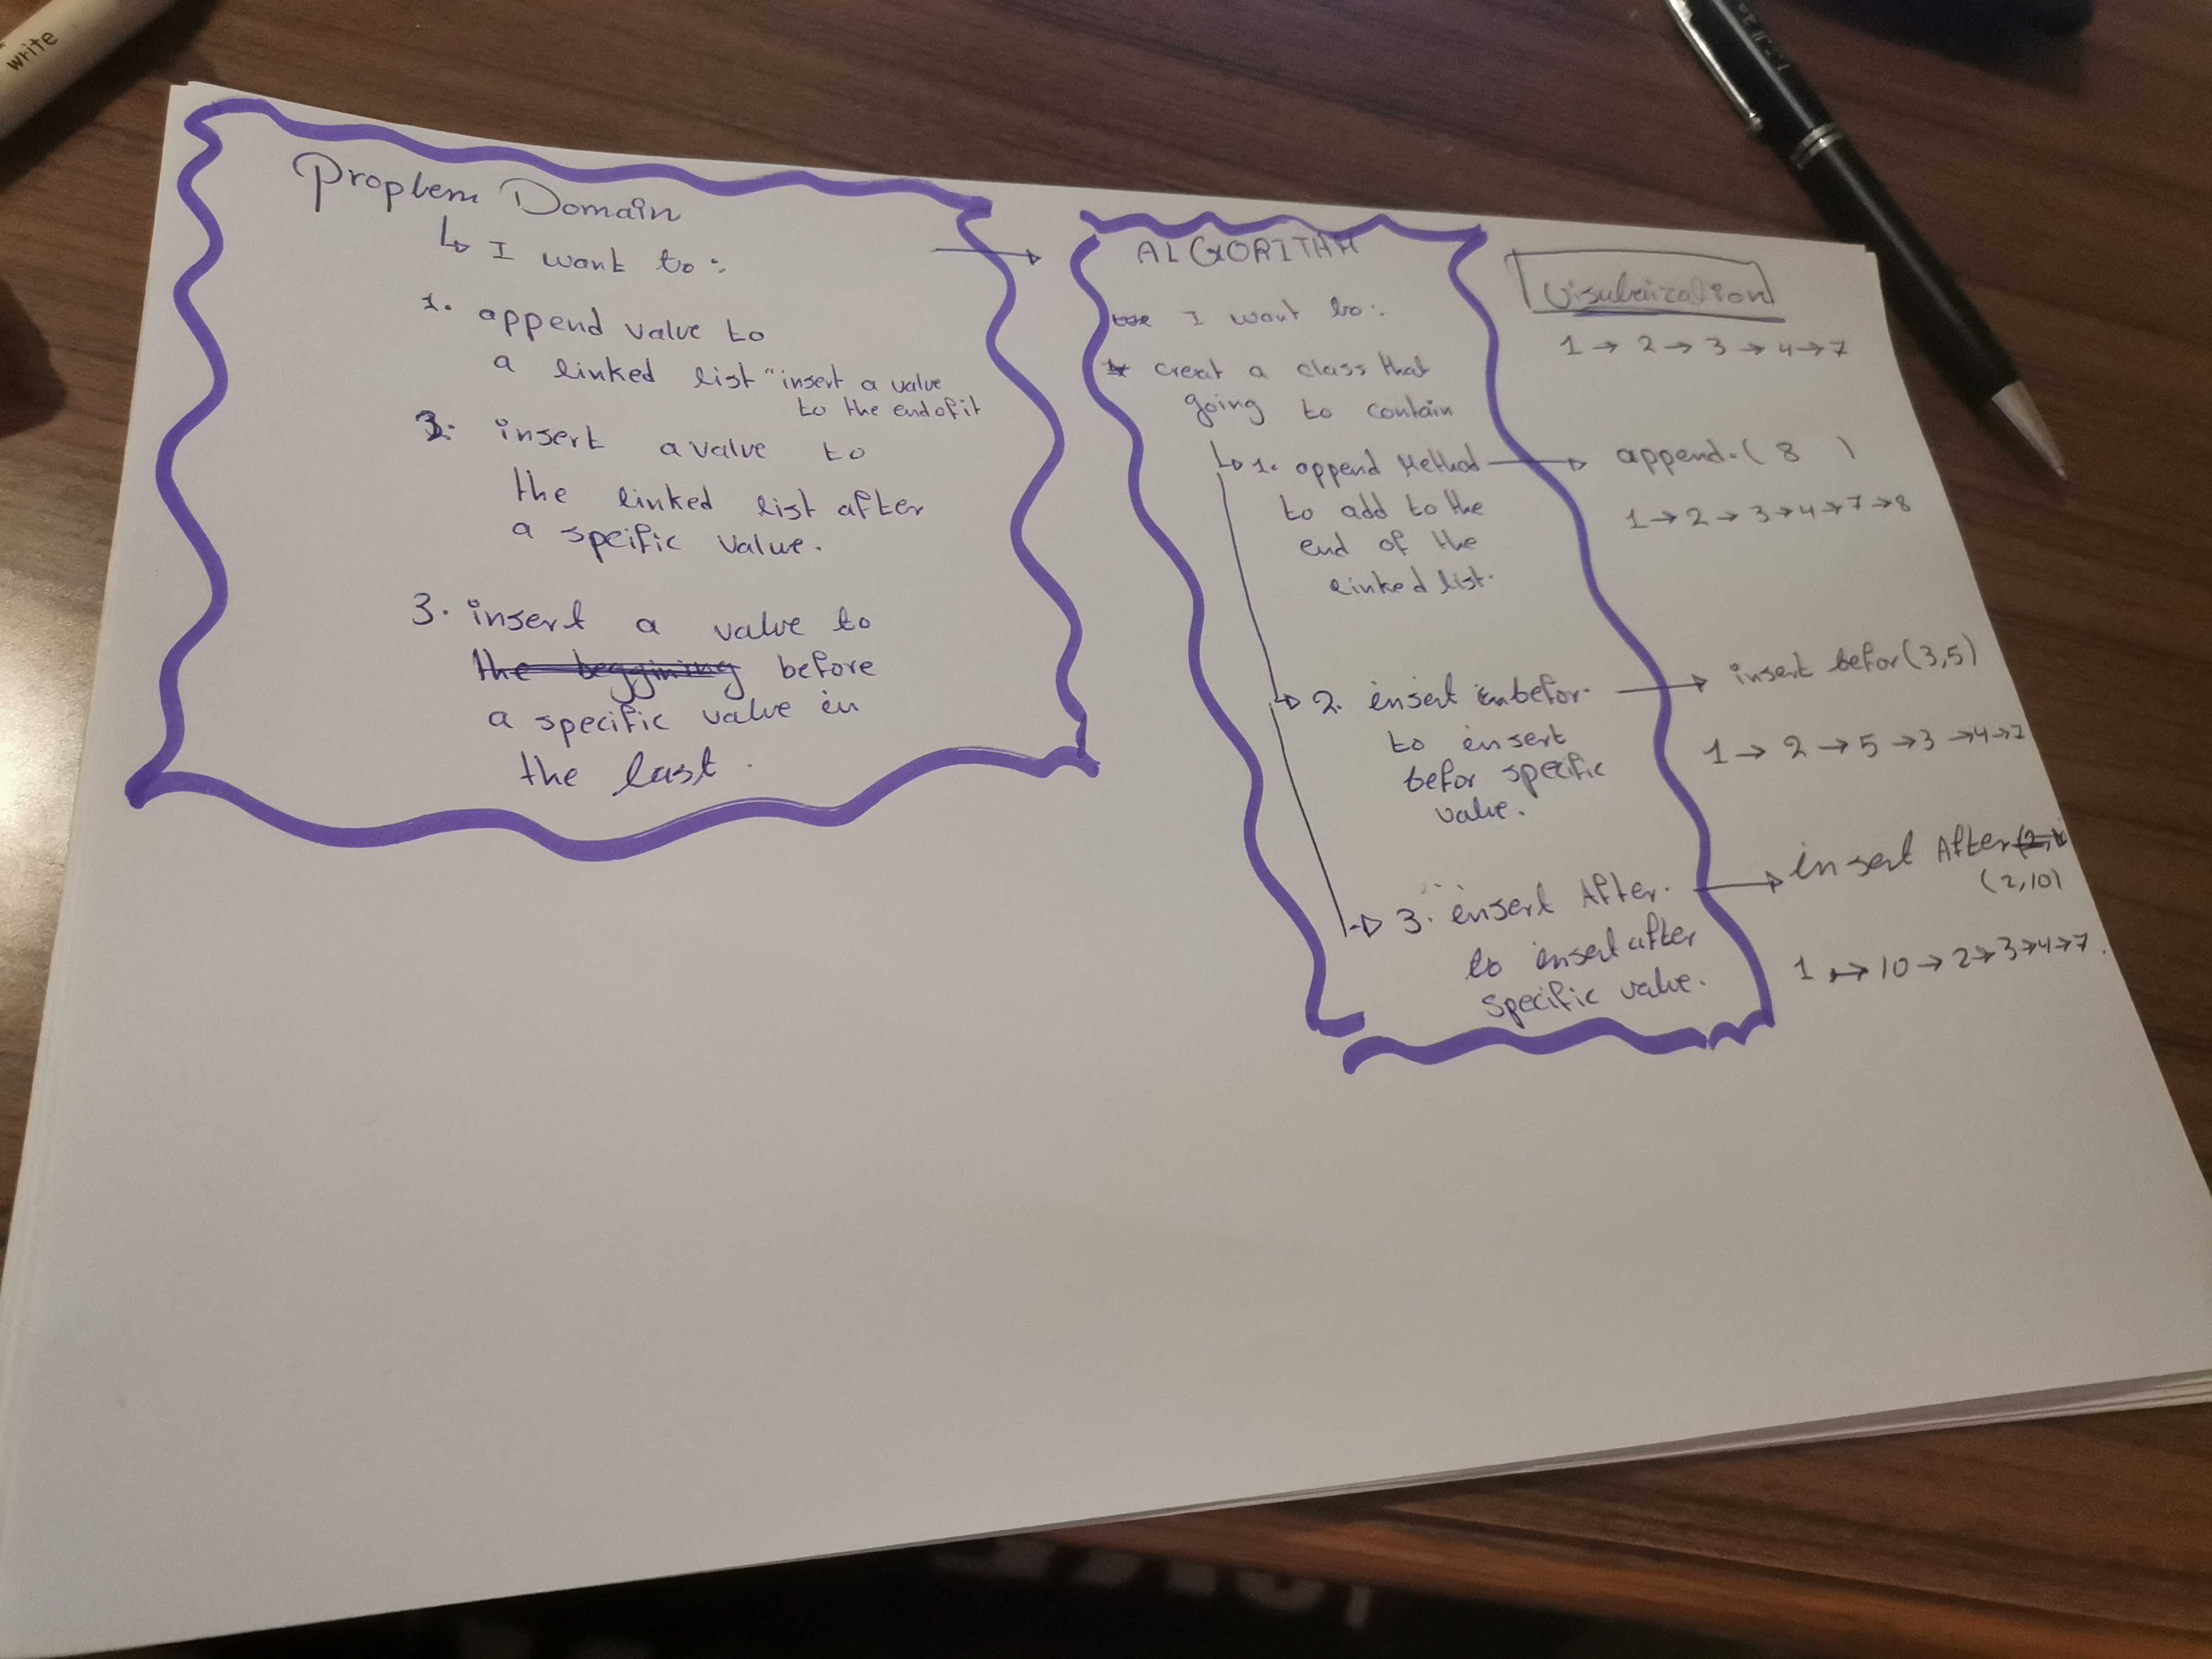 write
Proplem Domain
I want to:
1. append value to
a linked list "insert a value
to the end of it
2. insert a value to
the linked list after
a speific value.
3. insert a value to
the beggining before
a specific value in
the last.
ALGORITHM
I want to:
creat a class that
going to contain
1. append Method
to add to the
end of the
linked list.
2. insert befor.
to insert
befor specific
value.
3. insert After.
to insert after
specific value.
1 → 2 → 3 → 4 → 7
append.( 8 )
1 → 2 → 3 → 4 → 7 → 8
insert befor (3,5)
1 → 2 → 5 → 3 → 4 → 7
insert After
(2,10)
1 → 10 → 2 → 3 → 4 → 7.